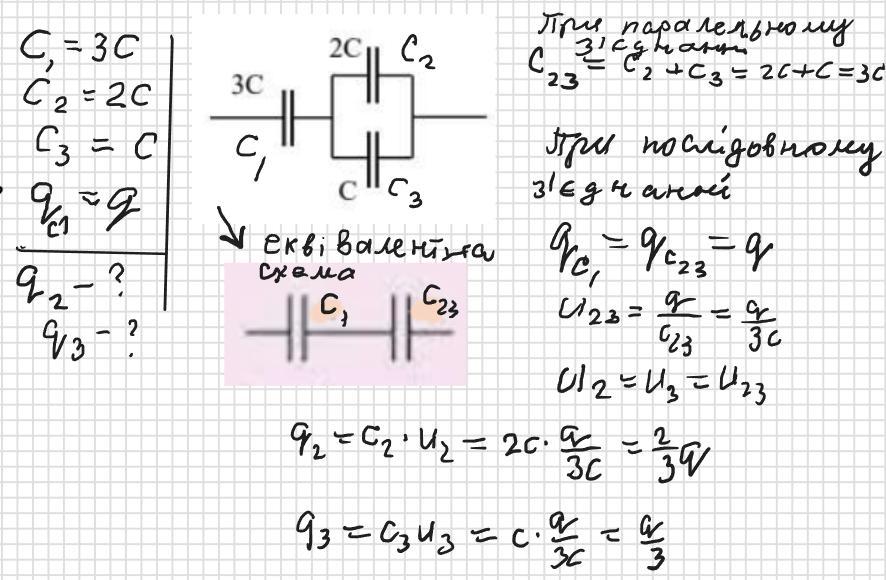 C₁ = 3C
C₂ = 2C
C₃ = C
q_c1 = q
q₂ - ?
q₃ - ?
3C
2C
C₂
C₁
C
C₃
еквівалентна
схема
C₁
C₂₃
При паралельному
з'єднанні
C₂₃ = C₂ + C₃ = 2C + C = 3C
При послідовному
з'єднанні
q_C₁ = q_C₂₃ = q
U₂₃ = q/C₂₃ = q/3C
U₂ = U₃ = U₂₃
q₂ = C₂ · U₂ = 2C · q/3C = 2/3 q
q₃ = C₃U₃ = C · q/3C = q/3